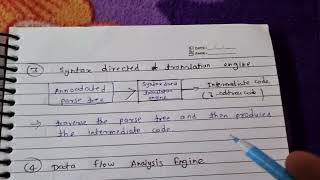 DATE:
③ Syntax directed translation engine
Annotated parse tree → Syntax directed translation engine → Intermediate code (3-address code)
→ traverse the parse tree and then produces
the intermediate code
④ Data flow Analysis Engine